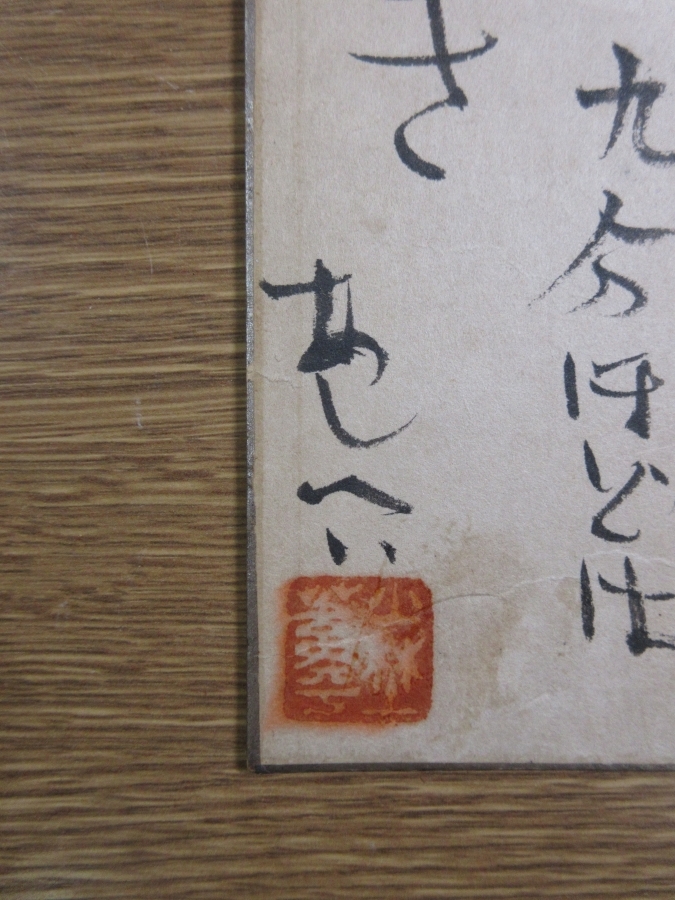 九分ほどは
さ
あしへい